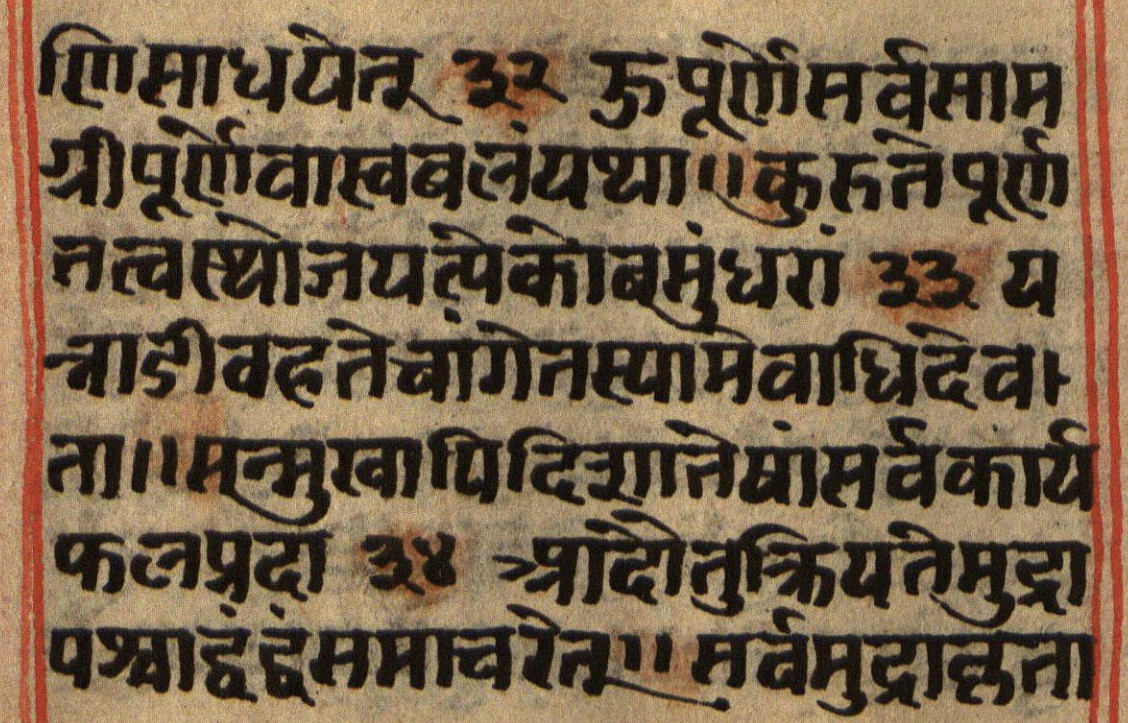 णिसाधयेत् ३२ ऊ पूर्णेसर्वसाम
ग्रीपूर्णेवास्वबलंयथा॥कुरुतेपूर्ण
तत्वस्थोजयत्पेकोबसुंधरां ३३ य
न्नाडीवहतेचांगेतस्यामेवाधिदेव।
ता॥सन्मुखापिदिशातेषांसर्वकार्य
फलप्रदा ३४ आदौतुक्रियतेमुद्रा
पश्चाद्युद्धंसमाचरेत्॥सर्वमुद्राकृता